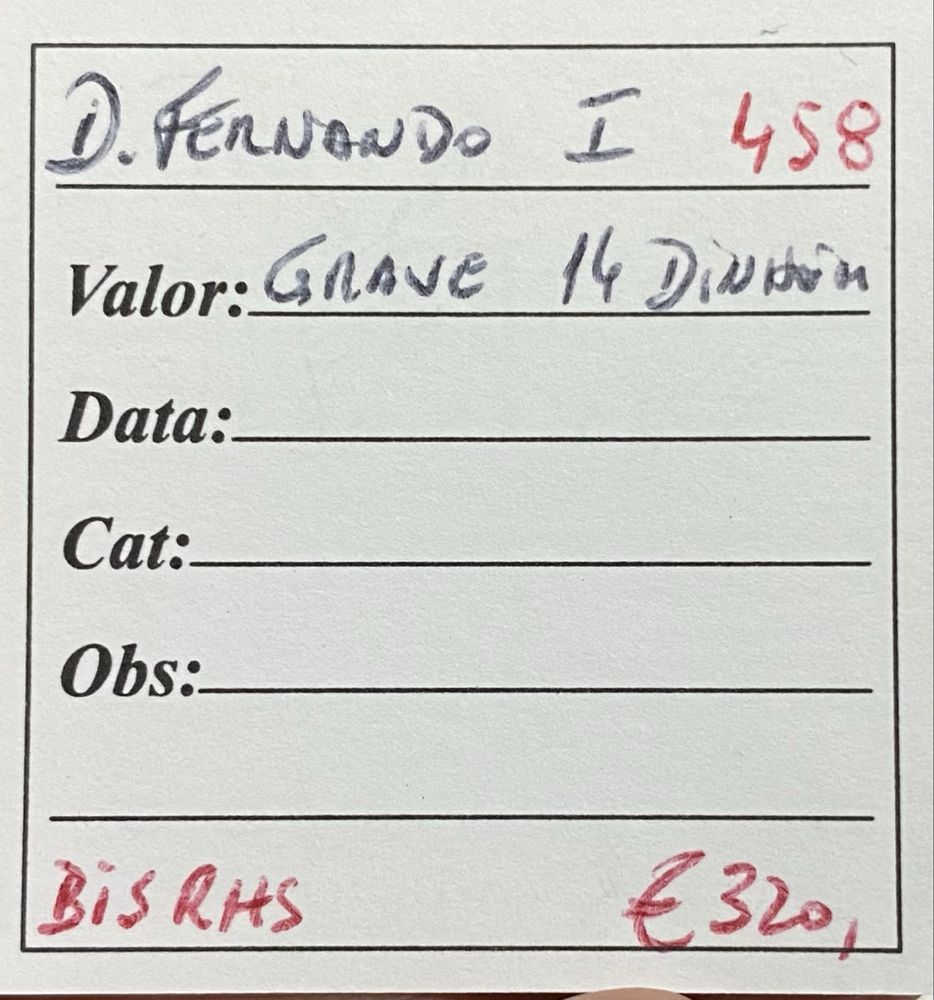 D. FERNANDO I 458
Valor: GRAVE 14
Data:
Cat:
Obs:
BiS RHS €320,